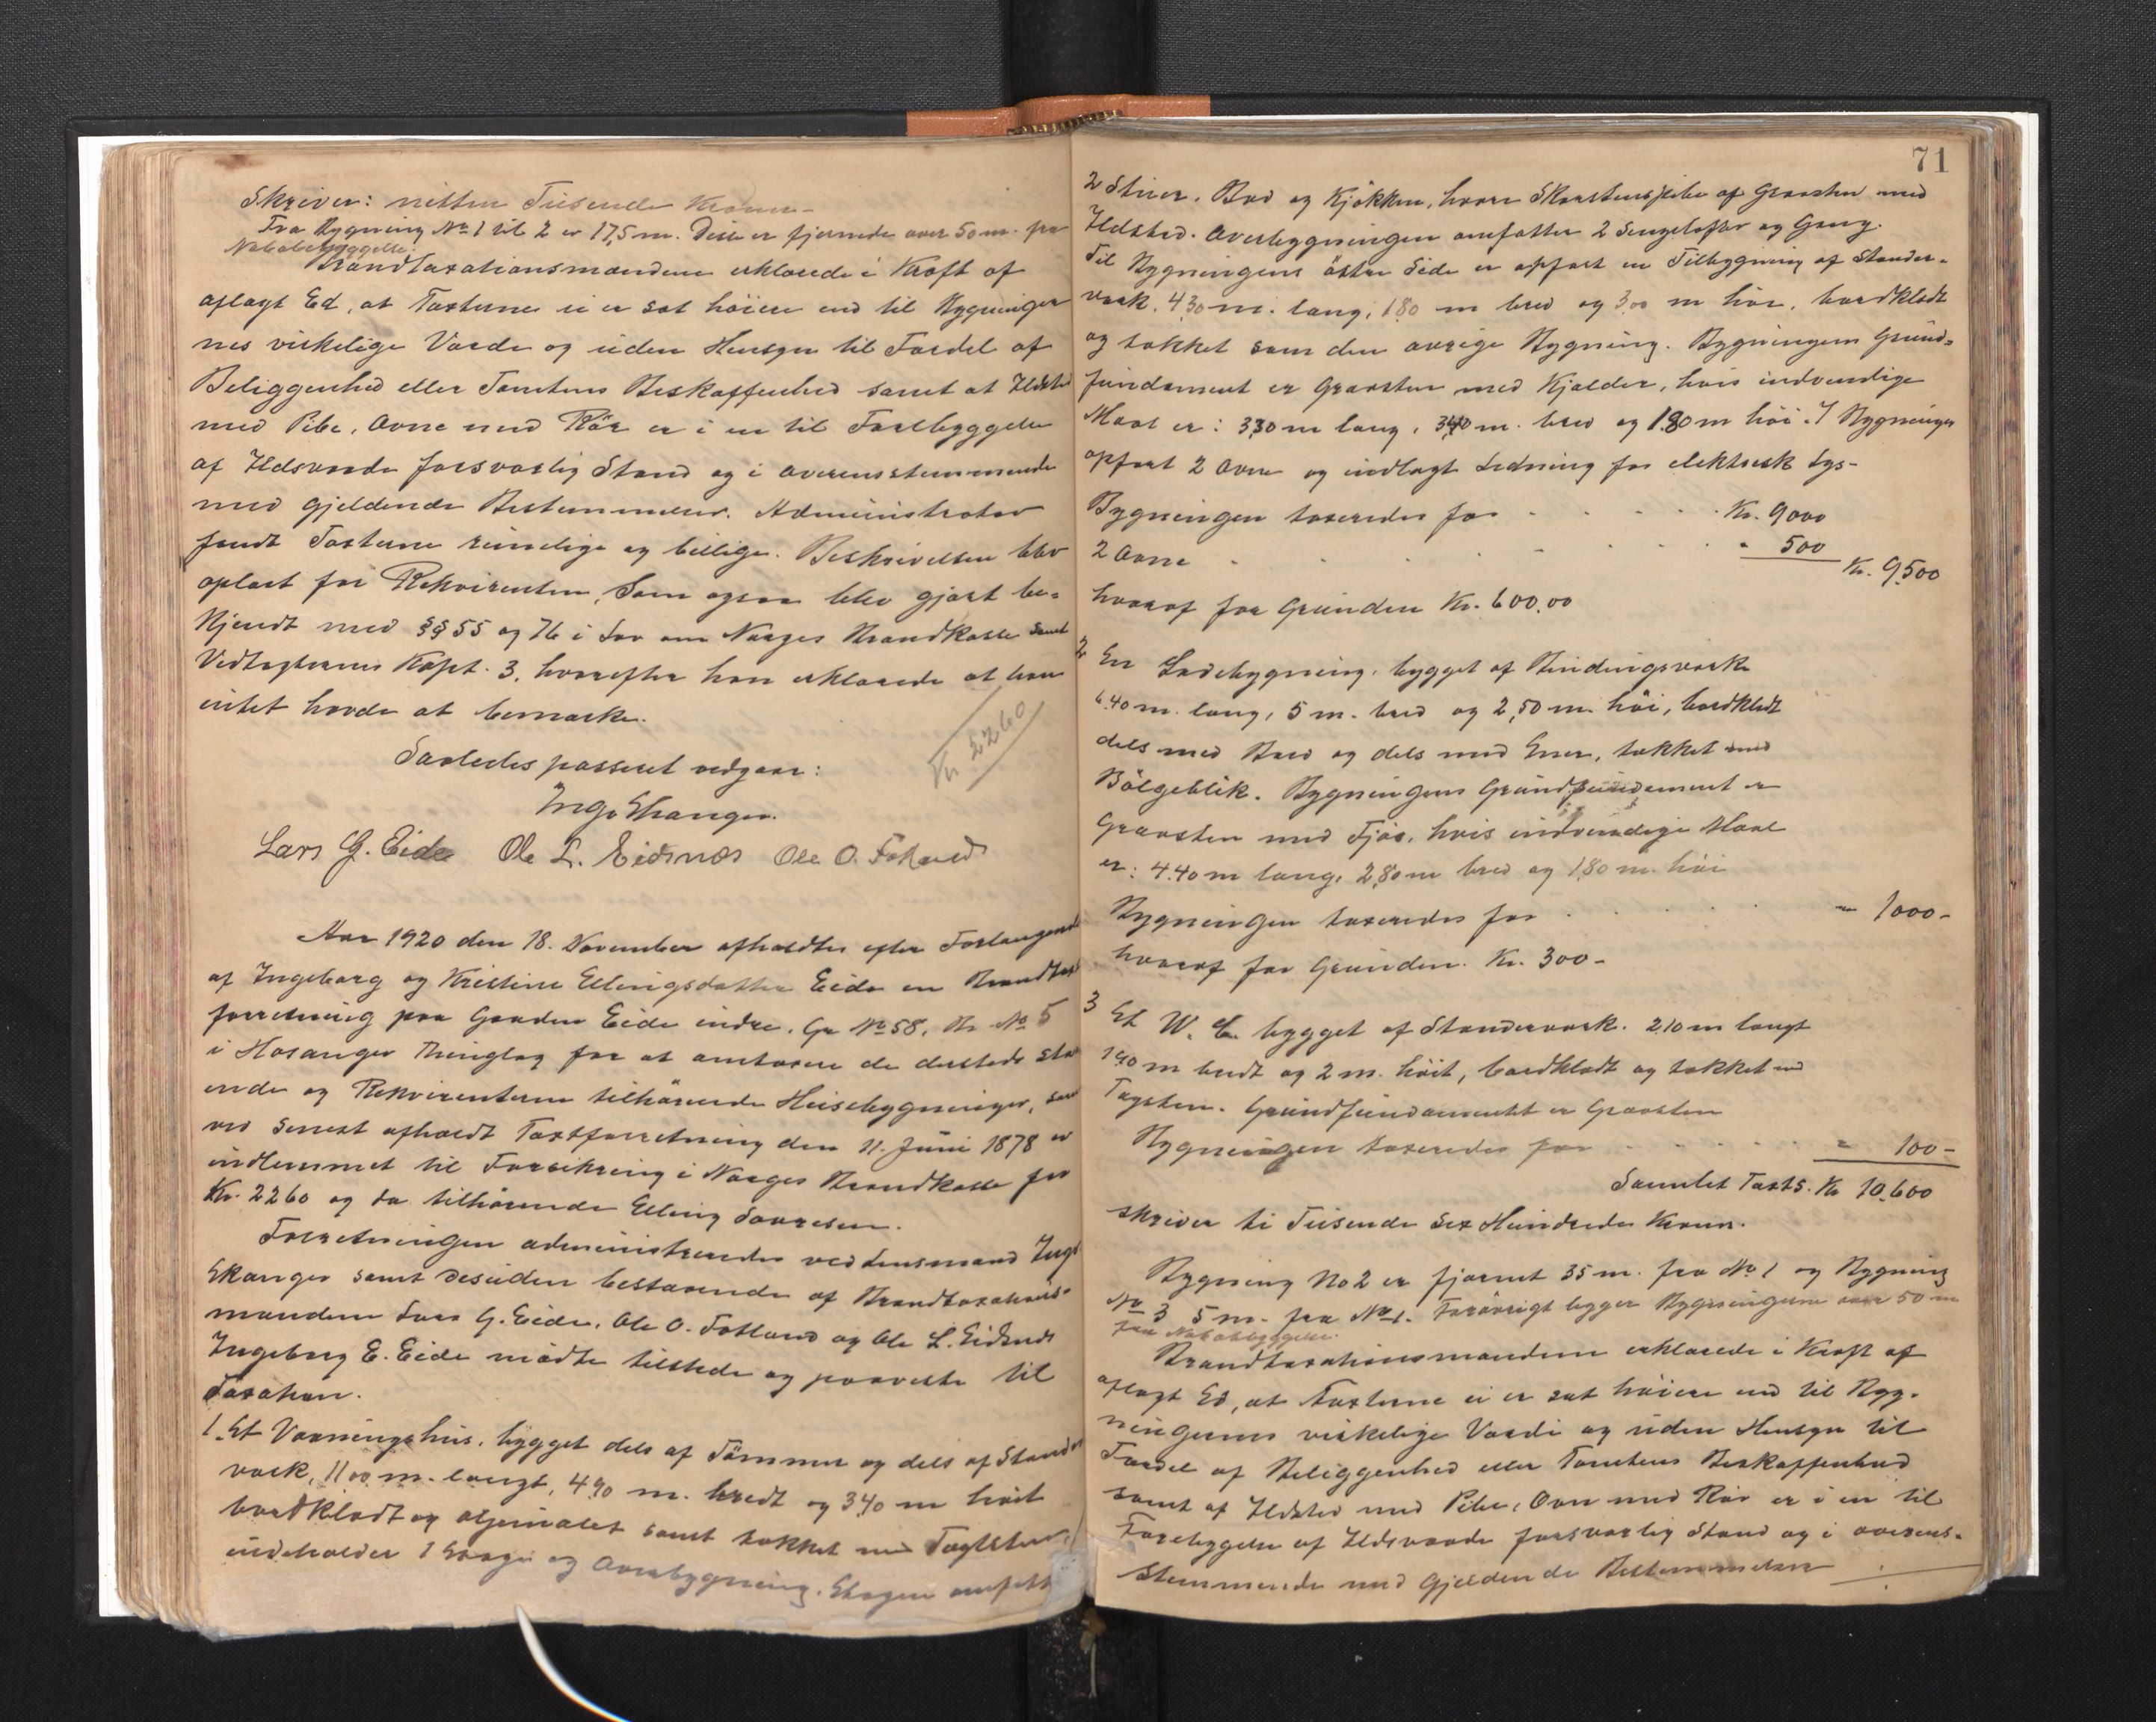 Skriver: nitten Tusende Kroner -
Fra Bygning No 1 til 2 er 17,5 m. Disse er fjernede over 50 m. fra
Nabobebyggelse.
Brandtaxationsmændene erklærede i Kraft af
aflagt Ed, at Taxterne ei er sat høiere end til Bygninger
nes virkelige Værde og uden Hensyn til Fordel af
Beliggenhed eller Tomtens Beskaffenhed samt at Ildsted
med Pibe, Ovne med Rör er i en til Forebyggelse
af Ildsvaade forsvarlig Stand og i Overensstemmende
med gjeldende Bestemmelser. Administrator
fandt Taxterne rimelige og billige. Beskrivelsen blev
oplæst for Rekvirenten, som ogsaa blev gjort be-
kjendt med §§ 55 og 76 i Lov om Norges Brandkasse samt
Vedtægternes Kapt. 3, hvorefter han erklærede at han
intet havde at bemærke.
Kr 2260
Saaledes passeret vedgaar:
Inge Skanger.
Lars G. Eide Ole L. Eidsnes Ole O. Fotland
Aar 1920 den 18. November afholdtes efter Forlangende
af Ingeborg og Kristine Ellingsdatter Eide en Brandtaxt
forretning paa Gaarden Eide indre, Gr No 58, Br No 5
i Hosanger Thinglag for at omtaxere de dersteds staa
ende og Rekvirenterne tilhörende Husebygninger, som
ved senest afholdt Taxtforretning den 11. Juni 1878 er
indlemmet til Forsikring i Norges Brandkasse for
Kr. 2260 og da tilhörende Elling Sjursen.
Forretningen administreredes ved Lensmand Inge
Skanger samt desuden bestaaende af Brandtaxations-
mændene Lars G. Eide, Ole O. Fotland og Ole L. Eidsnes
Ingeborg E. Eide mödte tilstede og paaviste til
Taxation.
1. Et Vaaningshus, bygget dels af Tömmer og dels af Stander
værk, 11,00 m. langt, 4,90 m. bredt og 3,40 m höit
bordklædt og oljemalet samt tækket med Taglsten,
indeholder 1 Etage og Overbygning. Etagen omfatter
71
2 Stuer, Bod og Kjökken, hvori Skorstenspibe af Graasten med
Ildsted. Overbygningen omfatter 2 Sengelofter og Gang.
Til Bygningens östre Side er opfört en Tilbygning af Stander-
værk, 4,30 m. lang, 1,80 m bred og 3,00 m höi, bordklædt
og tækket som den övrige Bygning. Bygningens Grund-
fundament er Graasten med Kjælder, hvis indvendige
Maal er: 3,30 m lang, 3,40 m. bred og 1,80 m höi. I Bygningen
opført 2 Ovne og indlagt Ledning for elektrisk Lys-
Bygningen taxeredes for . . . . . Kr. 9000
2 Ovne . . . . . " 500 Kr. 9,500
hvoraf for Grunden Kr. 600,00
2 En Ladebygning, bygget af Bindingsværk
6,40 m. lang, 5 m. bred og 2,50 m. höi, bordklædt
dels med Bord og dels med Ener, tækket med
Bölgeblik. Bygningens Grundfundament er
Graasten med Fjös, hvis indvendige Maal
er: 4,40 m lang, 2,80 m bred og 1,80 m. höi
Bygningen taxeredes for . . . . . " 1000-
hvoraf for Grunden Kr. 300-
3 Et W. C. bygget af Standerværk. 2,10 m langt
1,40 m bredt og 2 m. höit, bordklædt og tækket med
Tagsten. Grundfundamentet er Graasten
Bygningen taxeredes for . . . . . " 100-
Samlet Taxts. Kr 10,600
skriver ti Tusende Sex Hundrede Kroner.
Bygning No 2 er fjernet 35 m. fra No 1 og Bygning
No 3 5 m. fra No 1. Forövrigt ligger Bygningerne over 50 m
fra Nabobebyggelse.
Brandtaxationsmændene erklærede i Kraft af
aflagt Ed, at Taxterne ei er sat höiere end til Byg-
ningernes virkelige Værdi og uden Hensyn til
Fordel af Beliggenhed eller Tomtens Beskaffenhed
samt at Ildsted med Pibe, Ovn med Rör er i en til
Forebyggelse af Ildsvaade forsvarlig Stand og i overens-
stemmende med gjeldende Bestemmelser